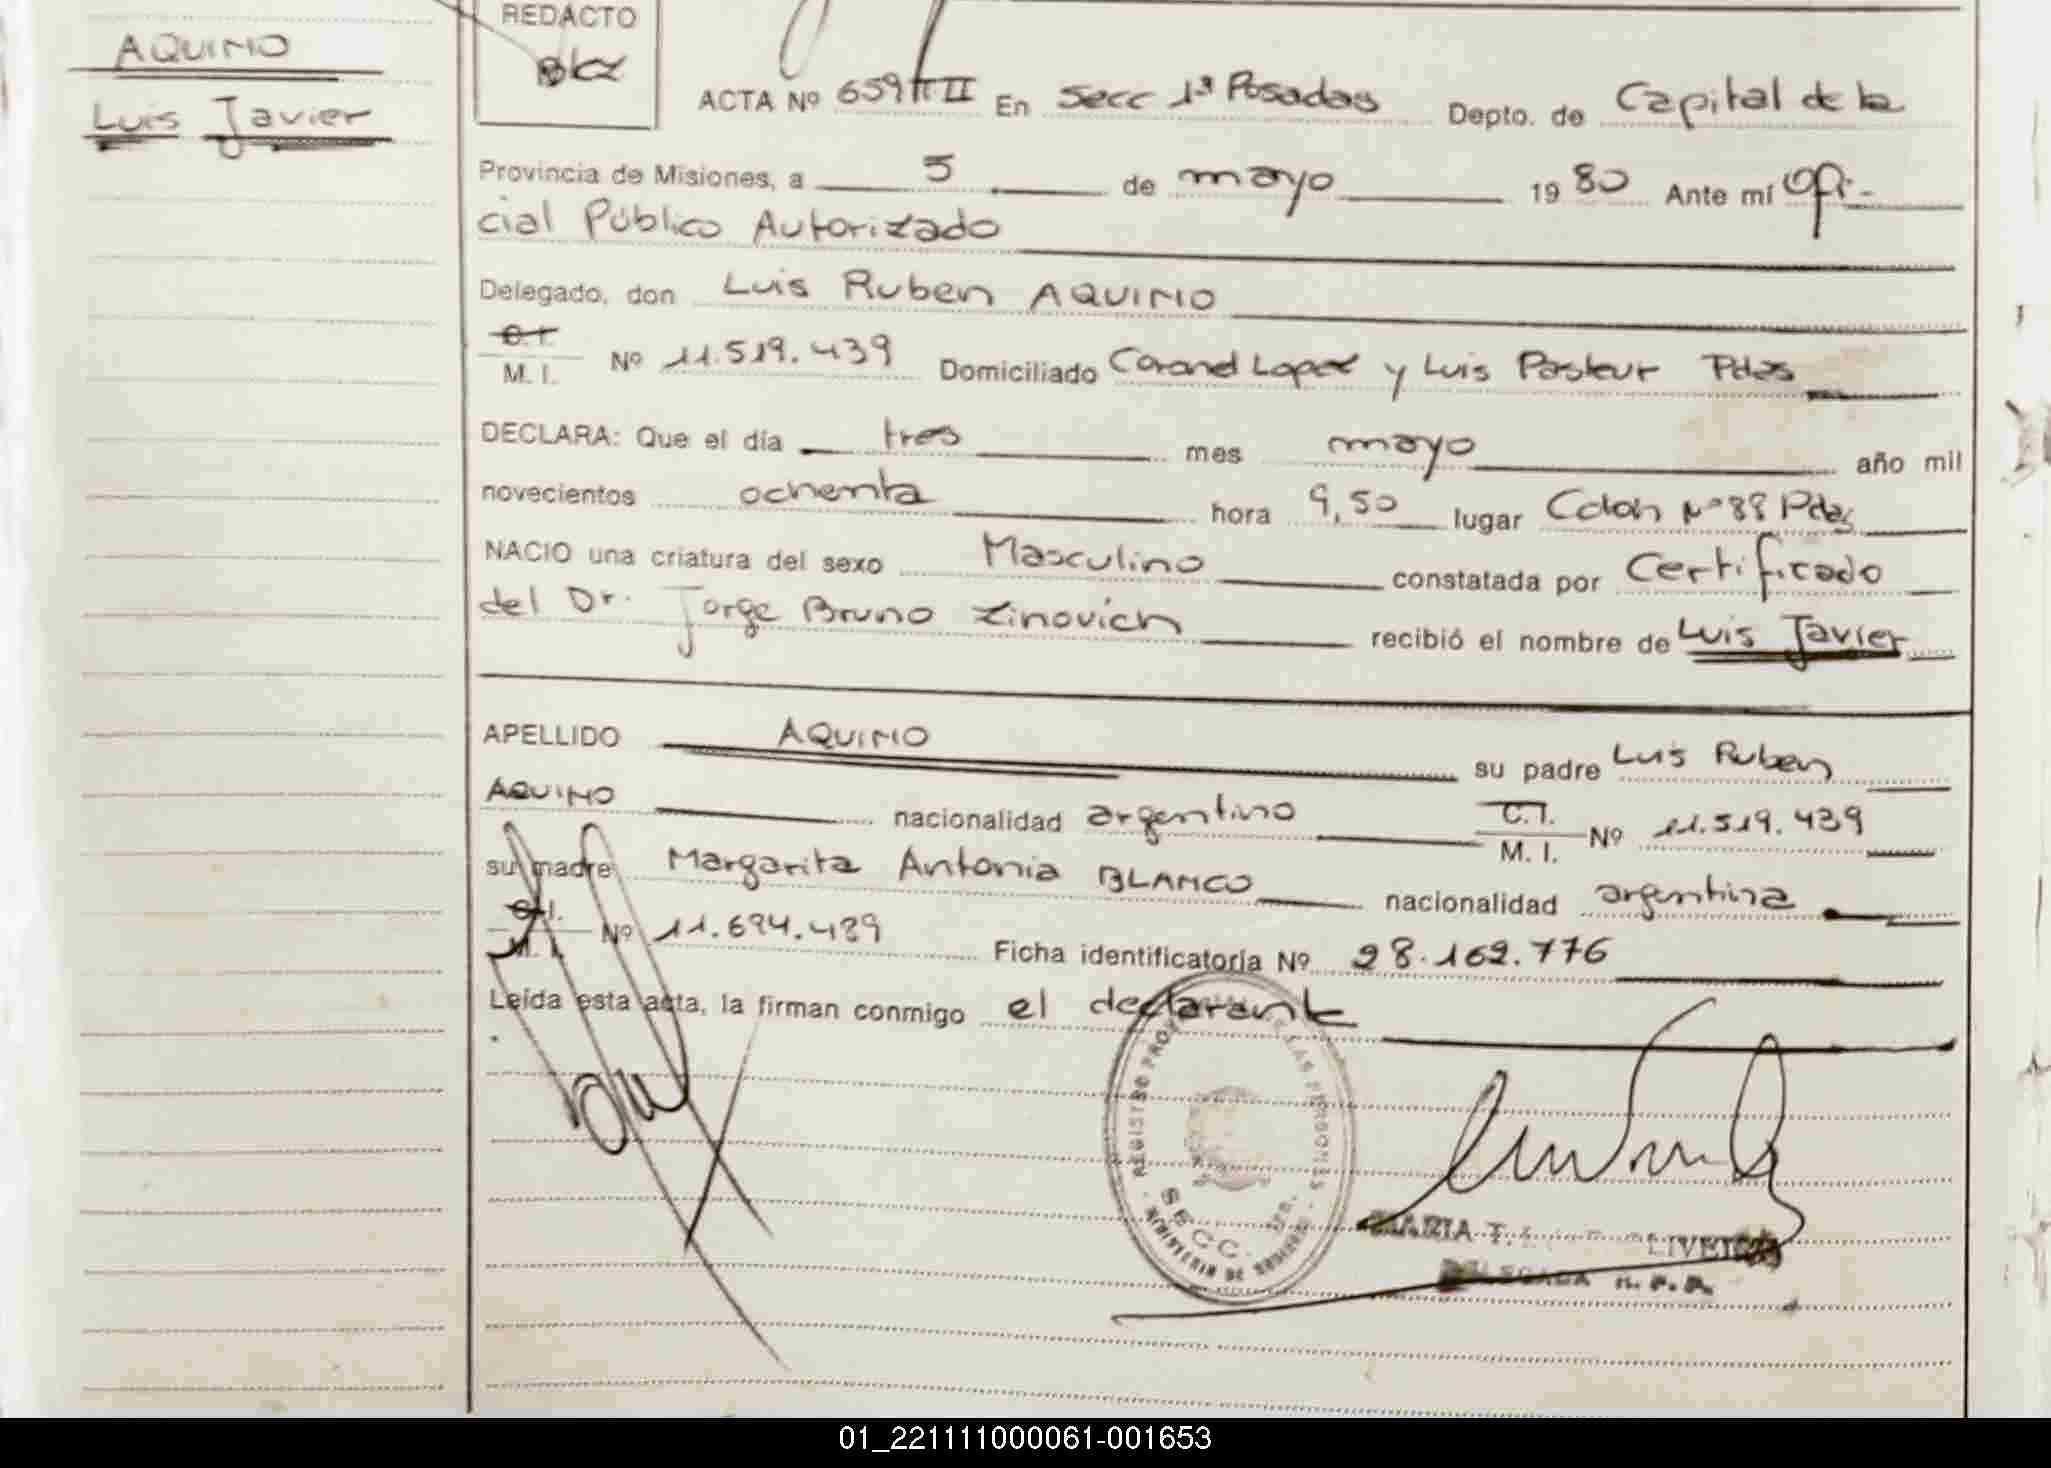 AQUINO
Luis Javier
REDACTO
ACTA Nº 659 T II En Secc 1ª Posadas Depto. de Capital de la
Provincia de Misiones, a 5 de mayo 1980 Ante mí Ofi-
cial Público Autorizado
Delegado, don Luis Ruben AQUINO
C.I. M.I. Nº 11.519.439 Domiciliado Coronel Lopez y Luis Pasteur Pdas
DECLARA: Que el día tres mes mayo año mil
novecientos ochenta hora 9,50 lugar Colon Nº 88 Pdas
NACIO una criatura del sexo Masculino constatada por Certificado
del Dr. Jorge Bruno Zinovich recibió el nombre de Luis Javier
APELLIDO AQUINO su padre Luis Ruben
AQUINO nacionalidad argentino C.I. M.I. Nº 11.519.439
su madre Margarita Antonia BLANCO nacionalidad argentina
C.I. M.I. Nº 11.694.489 Ficha identificatoria Nº 28.162.776
Leída esta acta, la firman conmigo el declarante
REGISTRO LAS PERSONAS
SECC. 1ra.
MARIA T.
DELEGADA R.P.P.
01_221111000061-001653